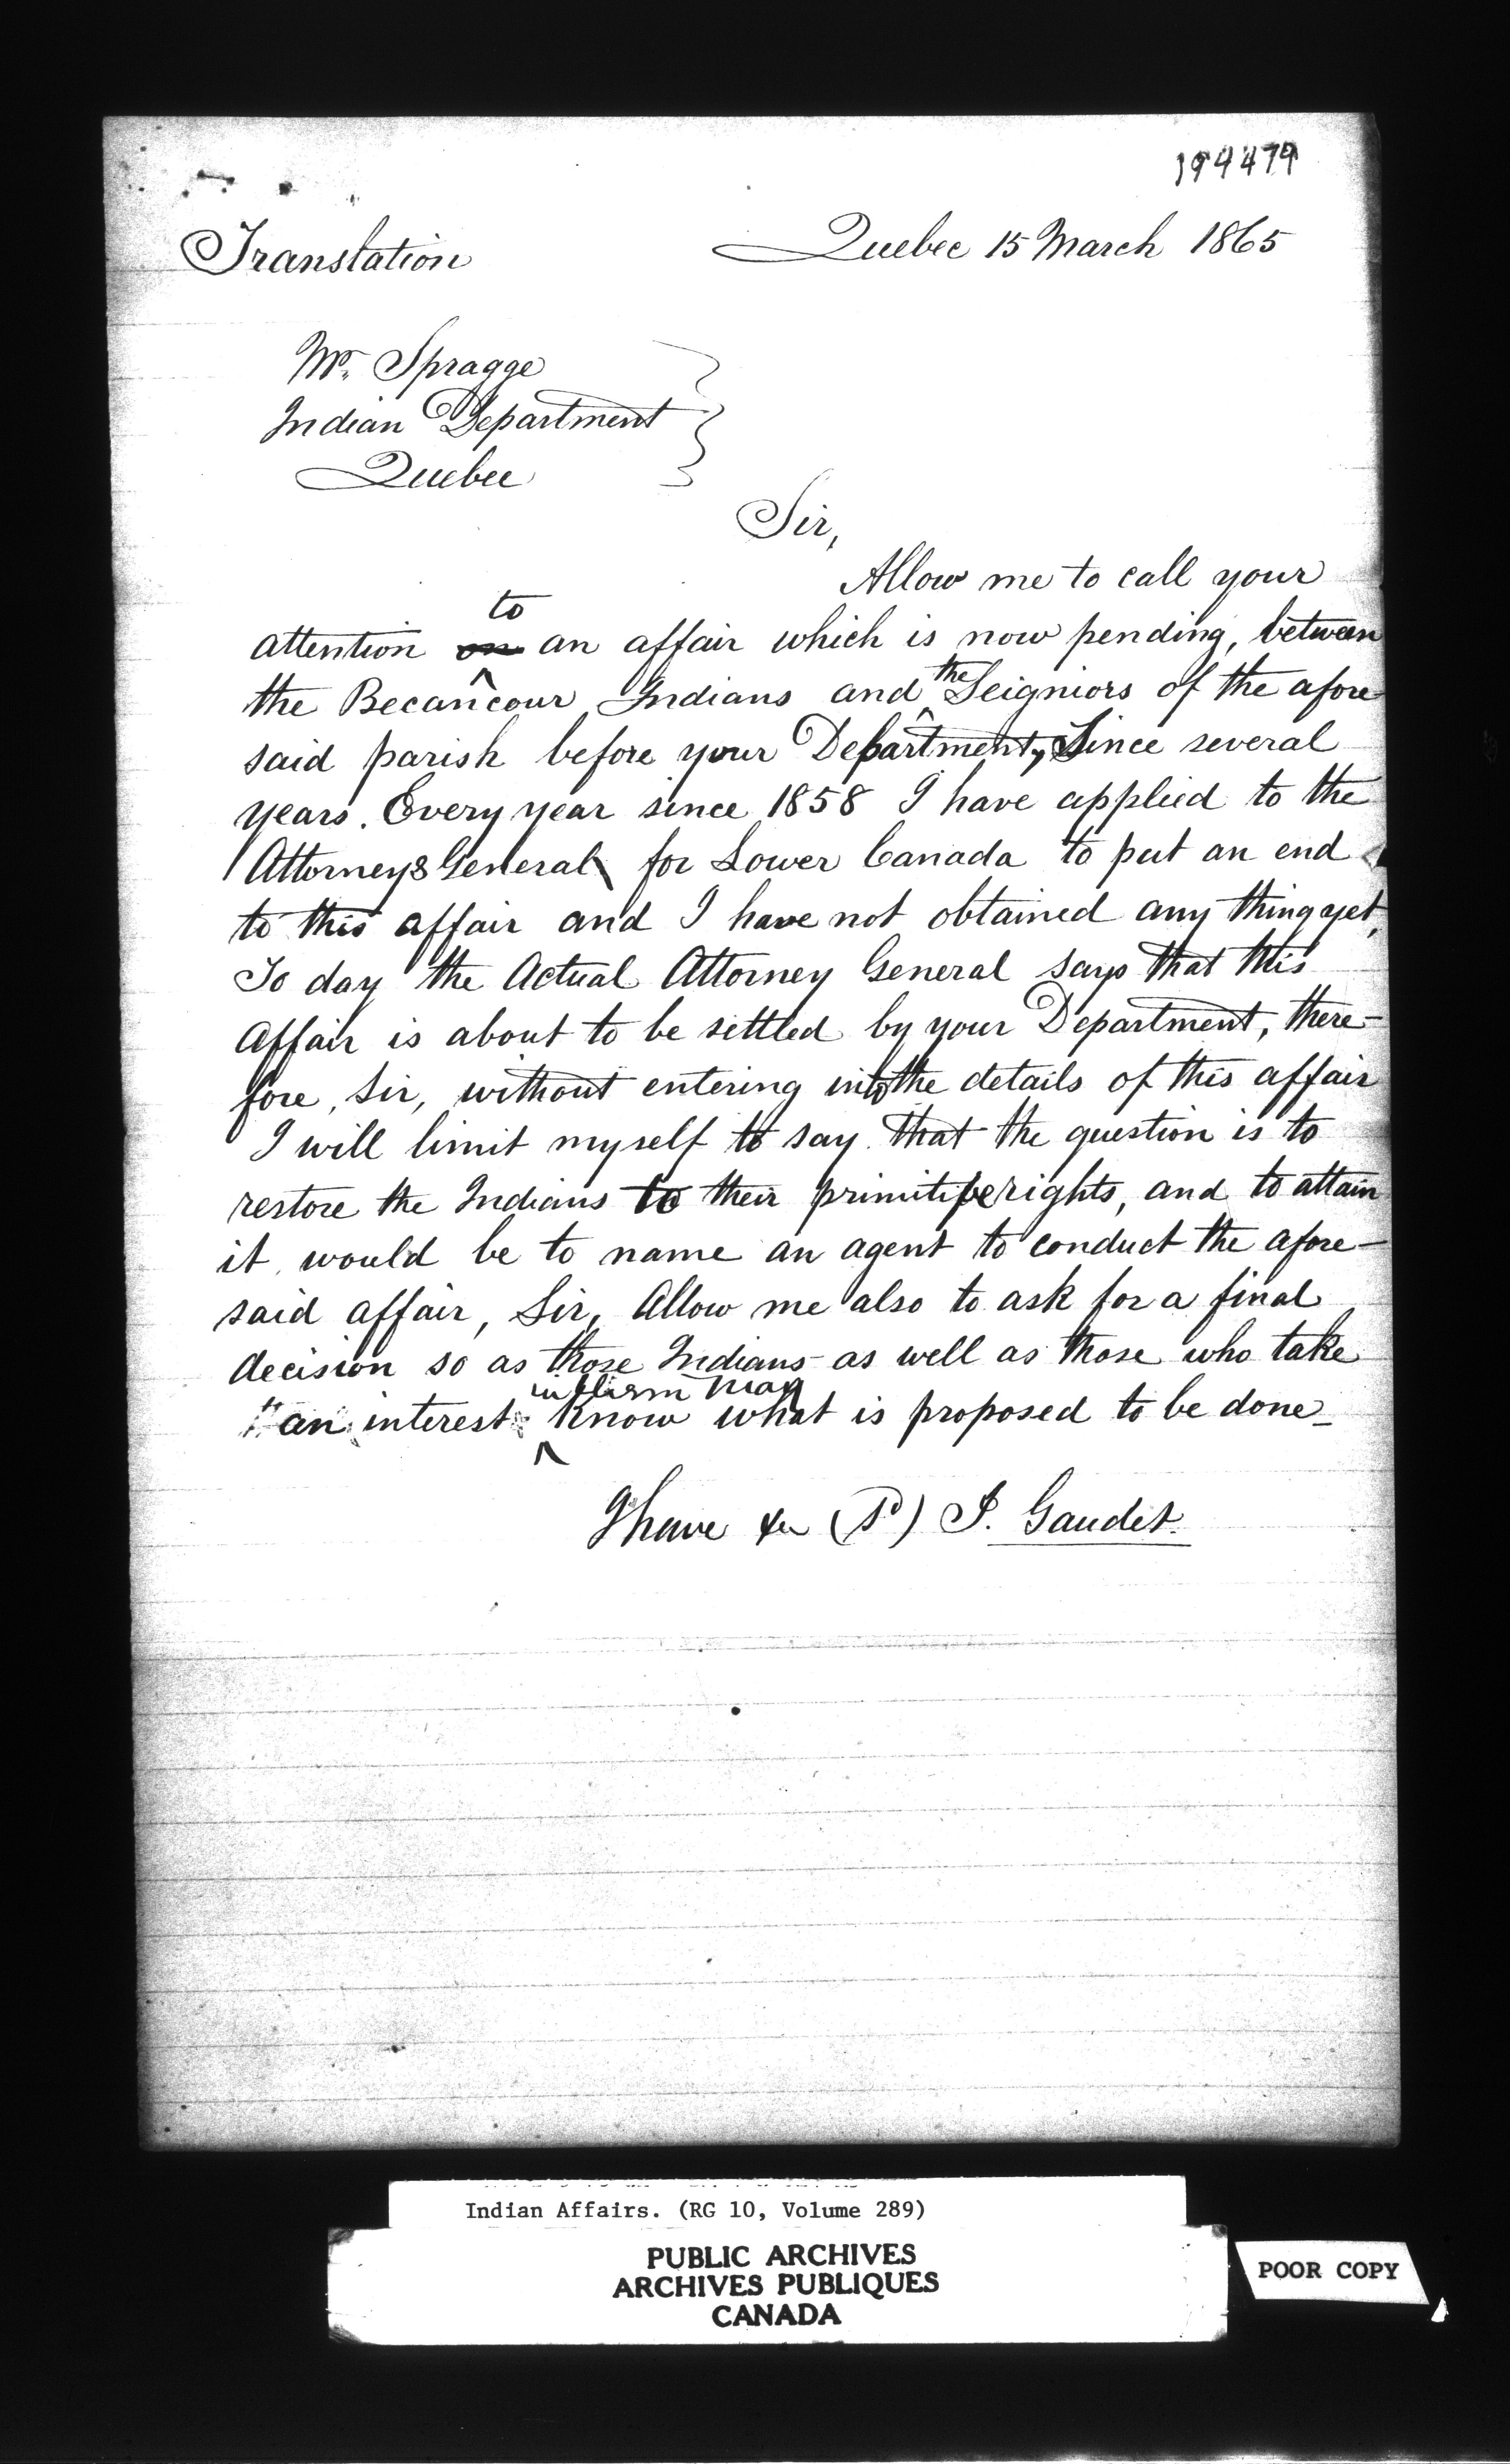 194479
Translation
Quebec 15 March 1865
Mr. Spragge
Indian Department
Quebec
Sir,
Allow me to call your
to
attention on an affair which is now pending, between
the
the Becancour Indians and Seigniors of the afore
said parish before your Department, Since several
years. Every year since 1858 I have applied to the
Attorneys General for Lower Canada to put an end
to this affair and I have not obtained any thing yet,
To day the Actual Attorney General says that this
affair is about to be settled by your Department, there-
fore, Sir, without entering into the details of this affair
I will limit myself to say that the question is to
restore the Indians to their primitive rights, and to attain
it would be to name an agent to conduct the afore-
said affair, Sir, Allow me also to ask for a final
decision so as those Indians as well as those who take
in them may
an interest know what is proposed to be done_
I have &c (Sd) I. Gaudet.
Indian Affairs. (RG 10, Volume 289)
PUBLIC ARCHIVES
ARCHIVES PUBLIQUES
CANADA
POOR COPY